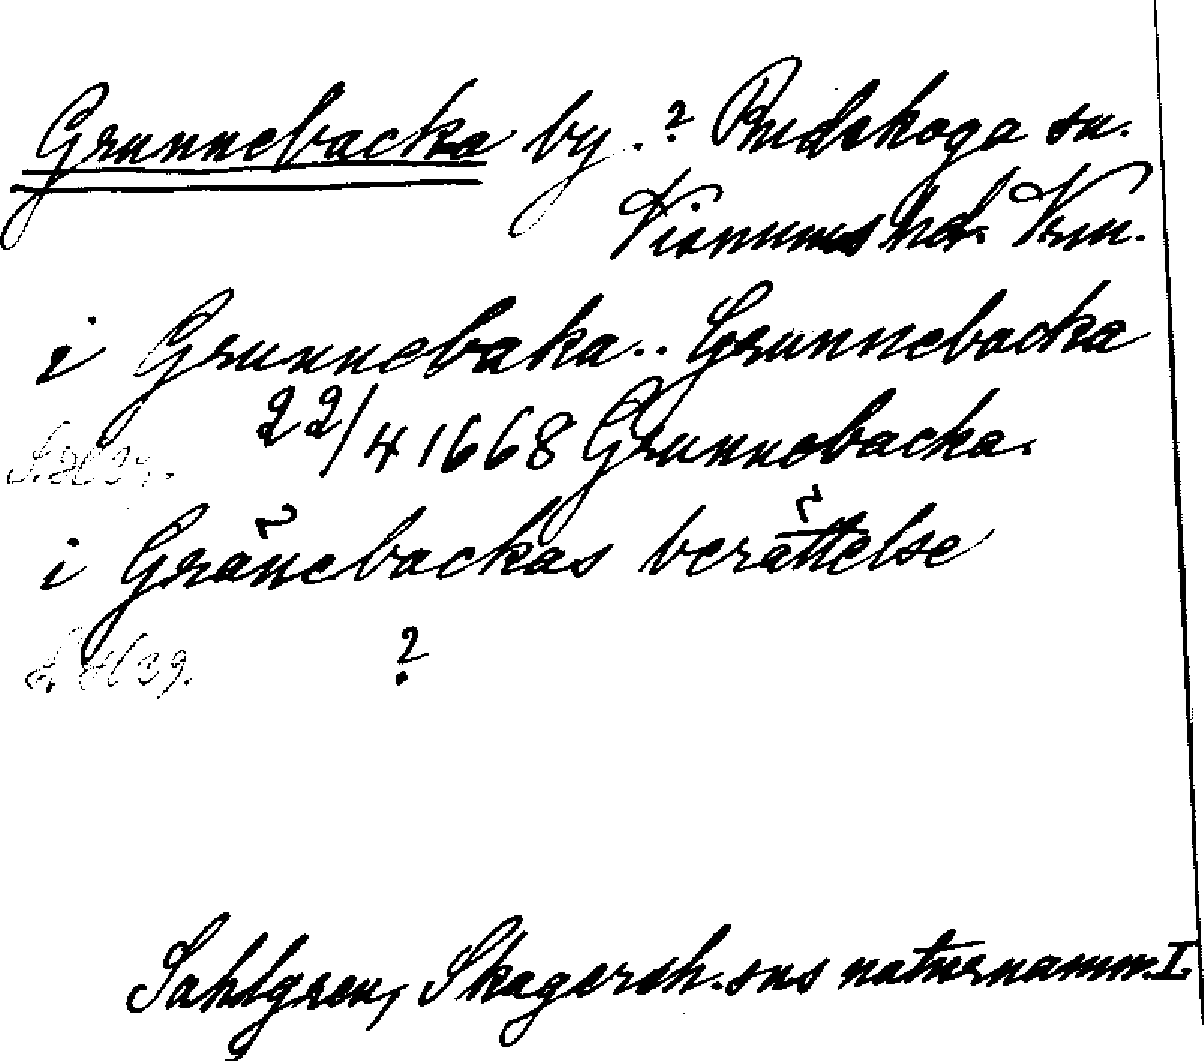 Grunnebacka by. ? Rudskoga sn.
Visnums hd. Vrm.
i Grunnebaka .. Grunnebacka
22/4 1668 Grunnebacka.
i Gränebackas berättelse
S. 39.
?
Sahlgren, Skagersh. sns naturnamn. I